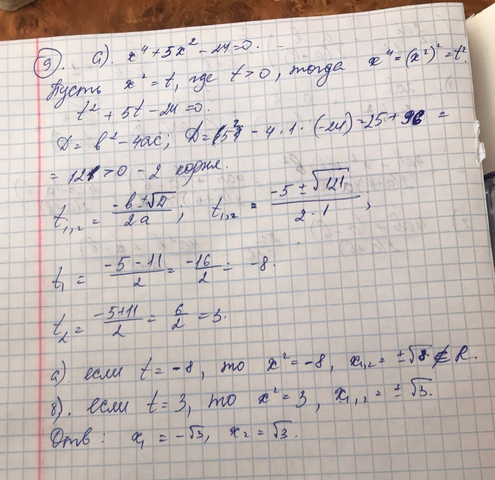 9). а). x⁴ + 5x² - 24 = 0.
Пусть x² = t, где t > 0, тогда x⁴ = (x²)² = t².
t² + 5t - 24 = 0.
D = b² - 4ac; D = (5²) - 4 · 1 · (-24) = 25 + 96 =
= 121 > 0 - 2 корня.
t₁,₂ = (-b ± √D)/(2a), t₁,₂ = (-5 ± √121)/(2 · 1);
t₁ = (-5 - 11)/2 = -16/2 = -8.
t₂ = (-5 + 11)/2 = 6/2 = 3.
а). если t = -8, то x² = -8, x₁,₂ = ±√8 ∉ R.
б). если t = 3, то x² = 3, x₁,₂ = ±√3.
Отв: x₁ = -√3, x₂ = √3.